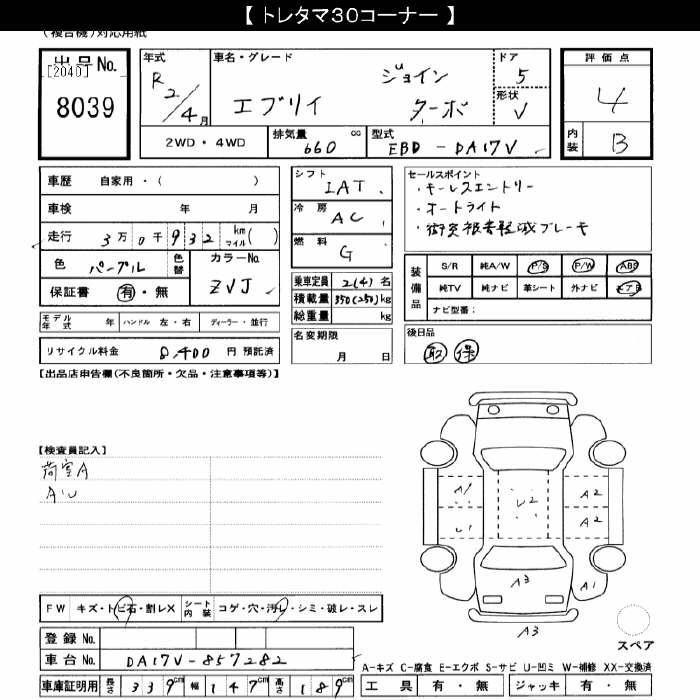 【 トレタマ30コーナー 】
(複合機)対応用紙
出品 No.
[2040]
8039
年式
R2/4月
車名・グレード
エブリイ
ジョイン
ターボ
ドア
5
形状
V
評価点
4
内装
B
2WD・4WD
排気量 660 cc
型式 EBD-DA17V
車歴 自家用・( )
車検 年 月
走行 3万0千932 km マイル( )
色 パープル
色替
カラーNo.
ZVJ
保証書 有・無
シフト
IAT
冷房
AC
燃料
G
乗車定員 2(4)名
積載量 350(250)kg
総重量 kg
セールスポイント
・キーレスエントリー
・オートライト
・衝突被害軽減ブレーキ
装備品
S/R 純A/W P/S P/W ABS
純TV 純ナビ 革シート 外ナビ エアB
ナビ型番:
モデル年式 年
ハンドル 左・右
ディーラー・並行
リサイクル料金 8,400 円 預託済
名変期限
月 日
後日品
取 保
【出品店申告欄(不良箇所・欠品・注意事項等)】
【検査員記入】
荷室A
AU
A1
U2
A2
U1
A2
A3
A1
A3
スペア
FW キズ・トビ石・割レX
シート内装 コゲ・穴・汚レ・シミ・破レ・スレ
登録 No.
車台 No. DA17V-857282
A-キズ C-腐食 E-エクボ S-サビ U-凹ミ W-補修 XX-交換済
車庫証明用 長さ 339cm 幅 147cm 高さ 189cm
工具 有・無 ジャッキ 有・無